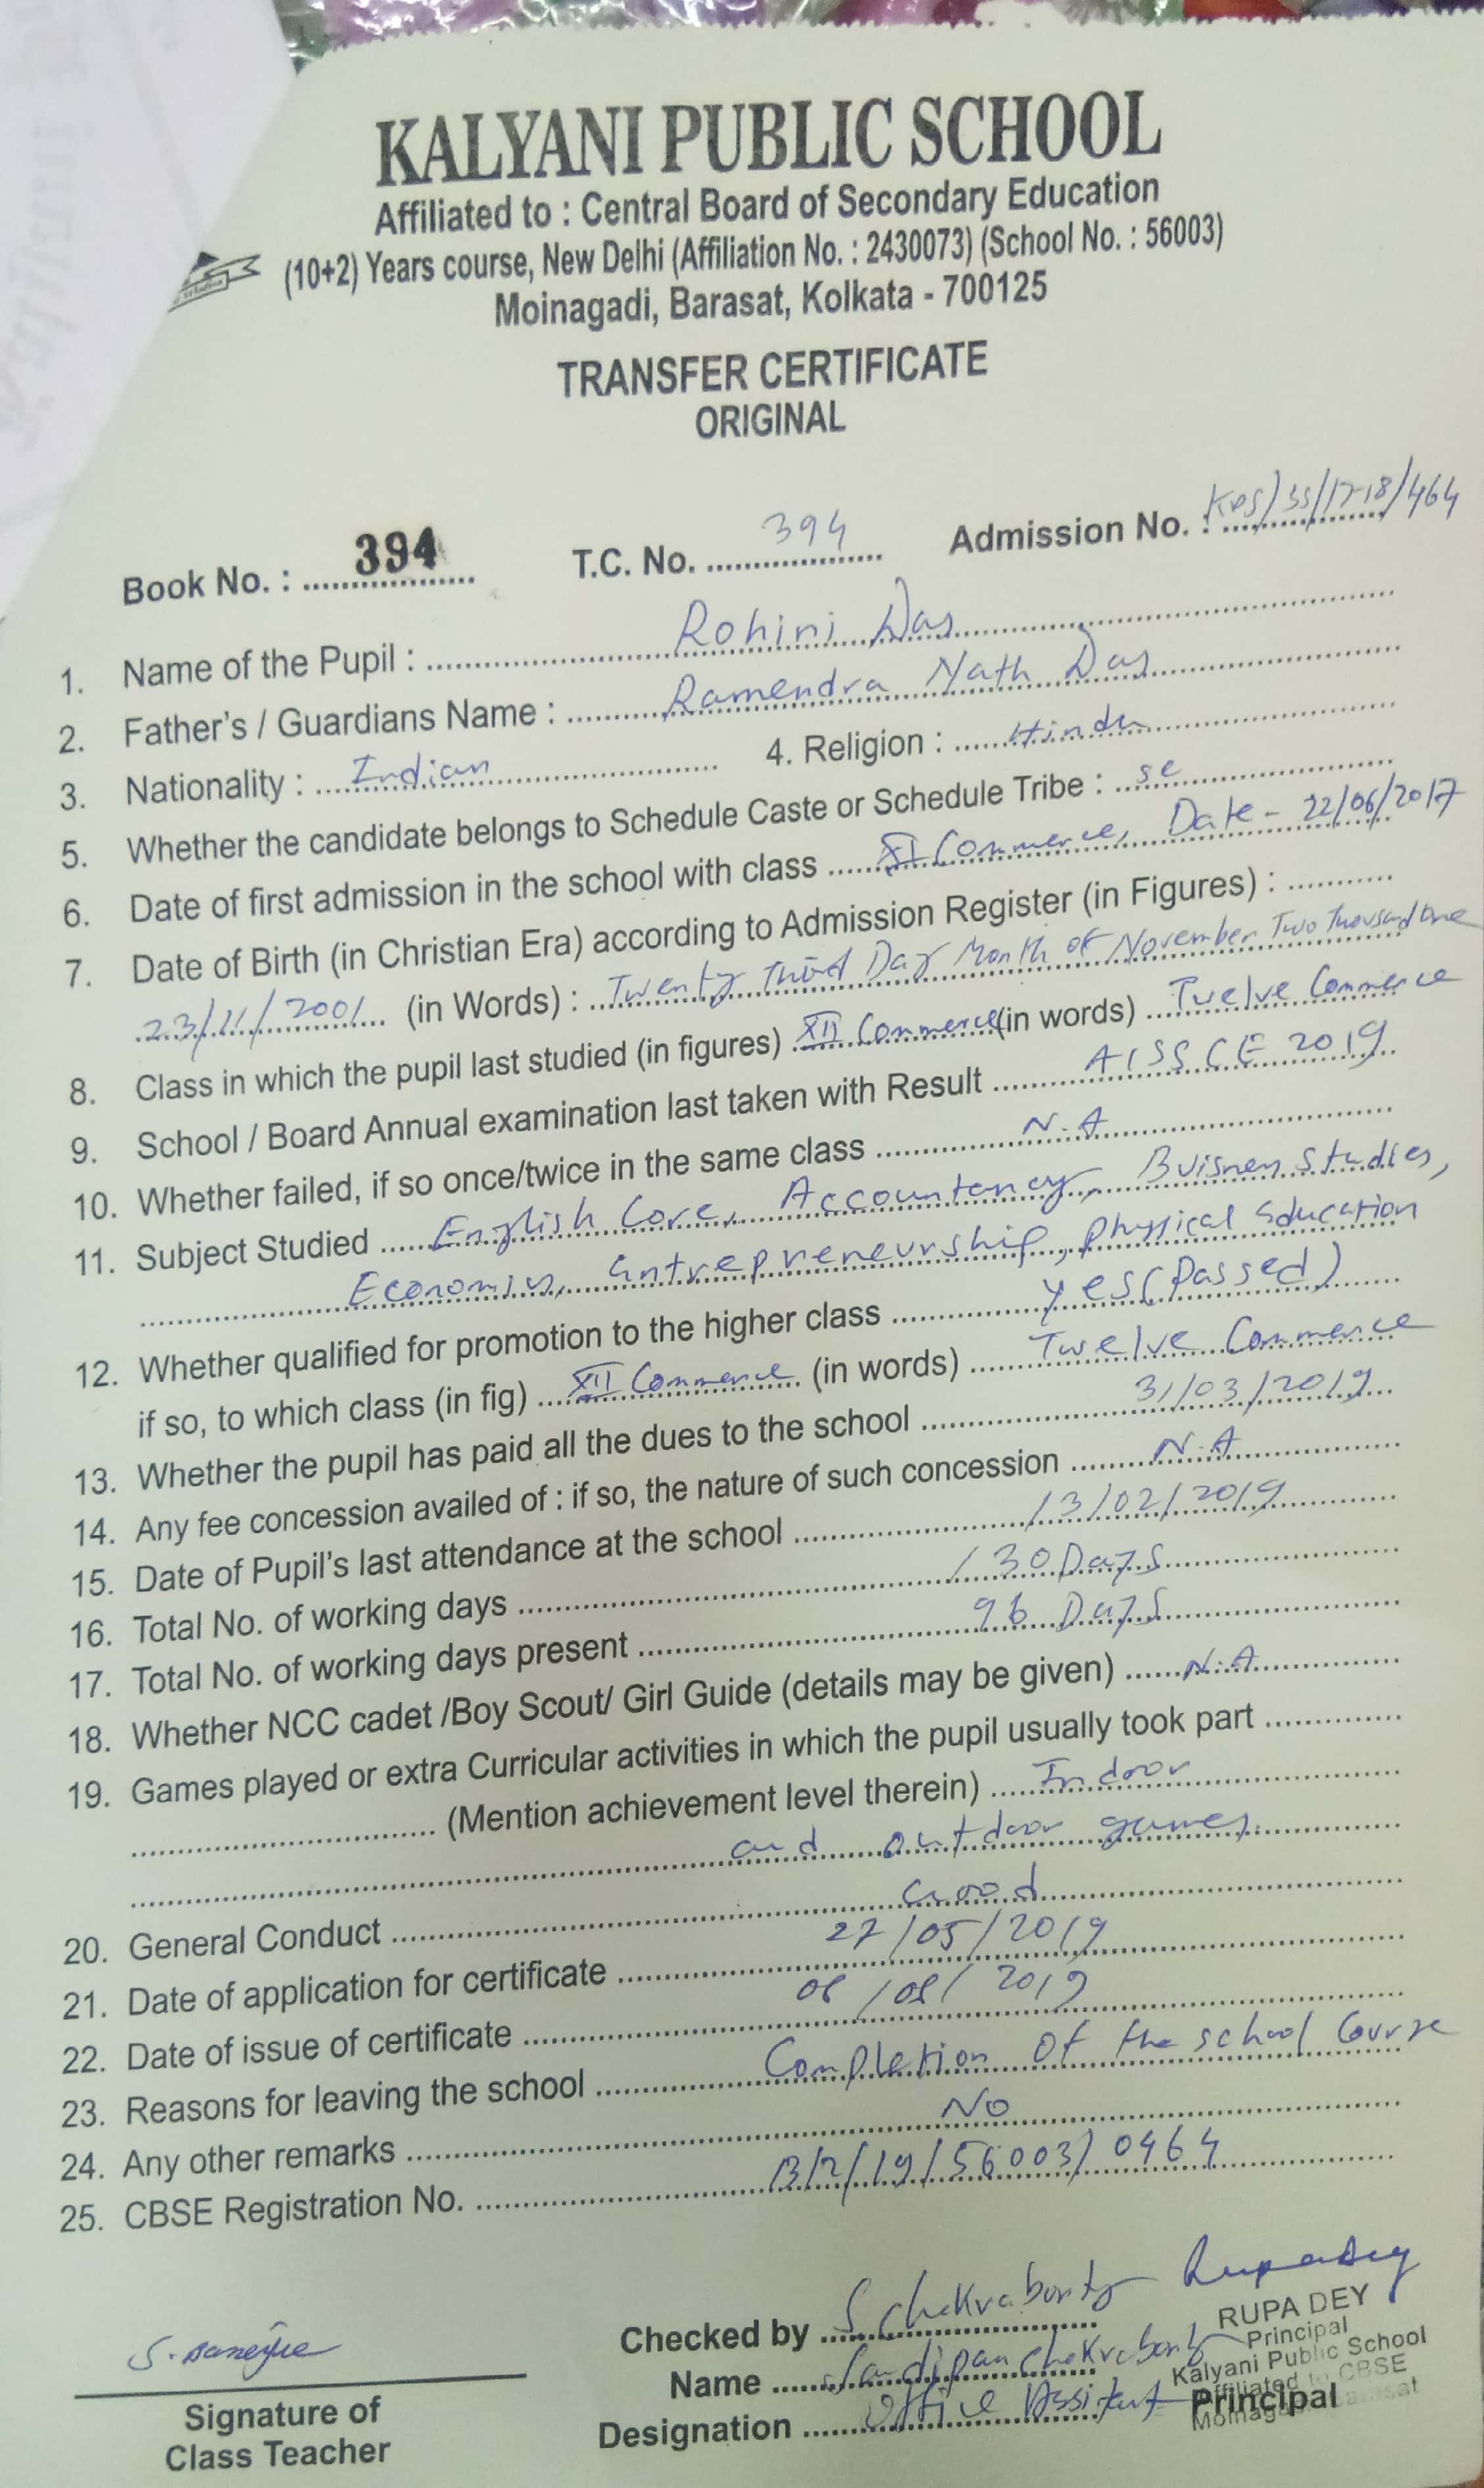 KALYANI PUBLIC SCHOOL
Affiliated to : Central Board of Secondary Education
(10+2) Years course, New Delhi (Affiliation No. : 2430073) (School No. : 56003)
Moinagadi, Barasat, Kolkata - 700125
TRANSFER CERTIFICATE
ORIGINAL
Book No. : 394 T.C. No. 394 Admission No. : KPS/SS/17-18/464
1. Name of the Pupil : Rohini Das
2. Father's / Guardians Name : Ramendra Nath Das
3. Nationality : Indian 4. Religion : Hindu
5. Whether the candidate belongs to Schedule Caste or Schedule Tribe : SC
6. Date of first admission in the school with class XI Commerce, Date - 22/06/2017
7. Date of Birth (in Christian Era) according to Admission Register (in Figures) :
23/11/2001 (in Words) : Twenty Third Day Month of November Two Thousand One
8. Class in which the pupil last studied (in figures) XII Commerce (in words) Twelve Commerce
9. School / Board Annual examination last taken with Result AISSCE 2019
10. Whether failed, if so once/twice in the same class N.A
11. Subject Studied English Core, Accountancy, Buisness Studies,
Economics, Entrepreneurship, Physical Education
12. Whether qualified for promotion to the higher class Yes (Passed)
if so, to which class (in fig) XII Commerce (in words) Twelve Commerce
13. Whether the pupil has paid all the dues to the school 31/03/2019
14. Any fee concession availed of : if so, the nature of such concession N.A
15. Date of Pupil's last attendance at the school 13/02/2019
16. Total No. of working days 130 Days
17. Total No. of working days present 96 Days
18. Whether NCC cadet /Boy Scout/ Girl Guide (details may be given) N.A
19. Games played or extra Curricular activities in which the pupil usually took part
(Mention achievement level therein) Indoor
and outdoor games
20. General Conduct Good
21. Date of application for certificate 27/05/2019
22. Date of issue of certificate 2019
23. Reasons for leaving the school Completion of the school Course
24. Any other remarks No
25. CBSE Registration No. B/2/19/56003/0464
Checked by S Chakraborty Rupa Dey
RUPA DEY
Principal
Kalyani Public School
Affiliated to CBSE
S. Banerjee
Name Sandipan Chakraborty
Designation Office Assistant Principal
Signature of
Class Teacher